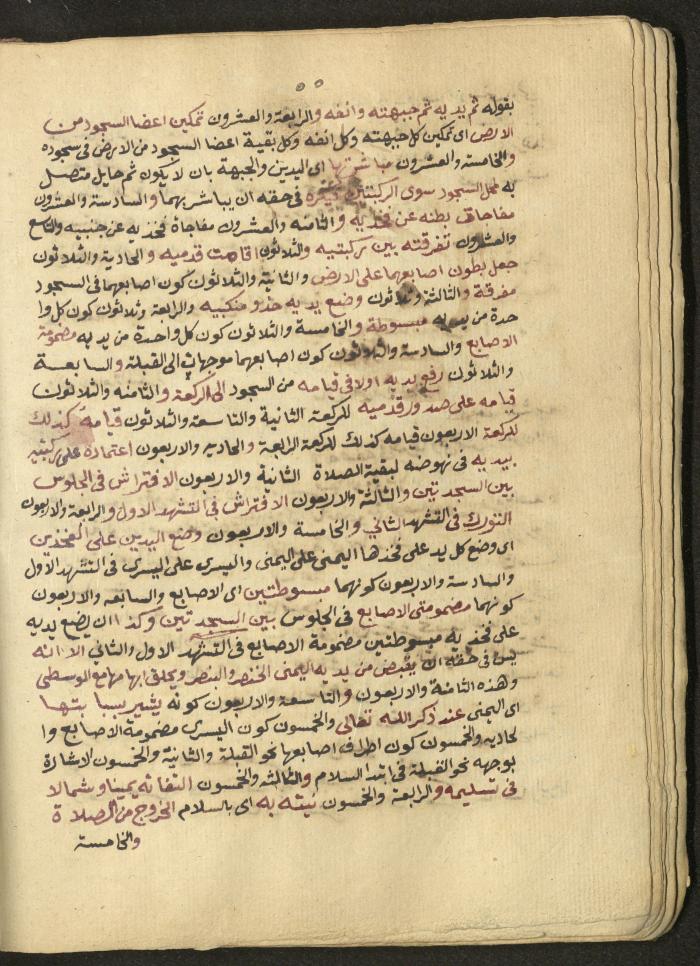 بقوله ثم يديه ثم جبهته وانفه والرابعة والعشرون تمكين اعضا السجود من
الارض اى تمكين كل جبهته وكل انفه وكل بقية اعضا السجود من الارض فى سجوده
والخامسة والعشرون مباشرتها اى اليدين والجبهة بان لا يكون ثم حايل متصل
به لمحل السجود سوى الركبتين فى حقه ان يباشر بهما والسادسة والعشرون
مجافات بطنه عن فخذيه والثامنه والعشرون مفاجاة فخذيه عن جنبيه والتاسع
والعشرون تفرقته بين ركبتيه والثلاثون اقامت قدميه والحادية والثلاثون
جعل بطون اصابعهما على الارض والثانية والثلاثون كون اصابعهما فى السجود
مفرقة والثالثة وثلاثون وضع يديه حذو منكبيه والرابعة وثلاثون كون كل وا
حدة من يديه مبسوطة والخامسة والثلاثون كون كل واحدة من يديه مضمومة
الاصابع والسادسة والثلاثون كون اصابعهما موجهات الى القبلة والسابعة
والثلاثون رفع يديه اولا فى قيامه من السجود الى الركعة والثامنه والثلاثون
قيامه على صدور قدميه للركعة الثانية والتاسعة والثلاثون قيامه كذلك
للركعة الاربعون قيامه كذلك للركعة الرابعة والحاديه والاربعون اعتماده على ركبتيه
بيديه فى نهوضه لبقية الصلاة الثانية والاربعون الافتراش فى الجلوس
بين السجدتين والثالثة والاربعون الافتراش فى التشهد الاول والرابعة والاربعون
التورك فى التشهد الثاني والخامسة والاربعون وضع اليدين على الفخذين
اى وضع كل يد على فخذها اليمنى على اليمنى واليسرى على اليسرى فى التشهد الاول
والسادسة والاربعون كونهما مبسوطتين اى الاصابع والسابعه والاربعون
كونهما مضمومتى الاصابع فى الجلوس بين السجدتين وكذا ان يضع يديه
على فخذيه مبسوطتين مضمومة الاصابع فى التشهد الاول والثاني الا انه
يسن فى حقه ان يقبض من يديه اليمنى الخنصر والبنصر ويحلق ابهامها مع الوسطى
وهذه الثامنة والاربعون والتاسعة والاربعون كونه يشير بسبابتها
اى اليمنى عند ذكر الله تعالى والخمسون كون اليسرى مضمومة الاصابع وا
لحاديه والخمسون كون اطراف اصابعها نحو القبلة والثانية والخمسون لاشارة
بوجهه نحو القبلة فى ابتدا السلام والثالثه والخمسون التفاته يمينا وشمالا
فى تسليمه والرابعة والخمسون نيته به اى بالسلام الخروج من الصلاة
والخامسة